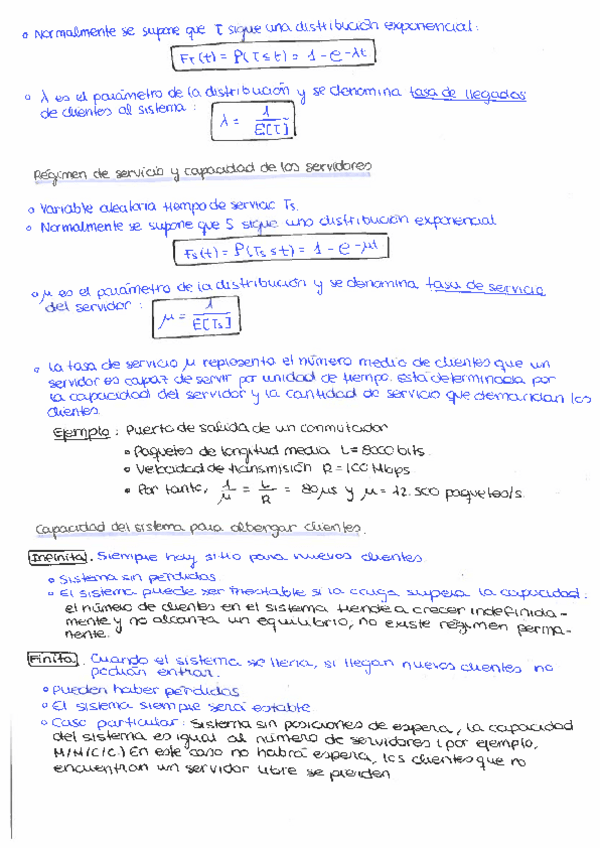 • Normalmente se supone que τ sigue una distribución exponencial:
Fτ(t) = P(τ ≤ t) = 1 - e^-λt
• λ es el parámetro de la distribución y se denomina tasa de llegadas
de clientes al sistema: λ = 1/E[τ]
Régimen de servicio y capacidad de los servidores
• Variable aleatoria tiempo de servicio Ts.
• Normalmente se supone que S sigue una distribución exponencial
Fs(t) = P(Ts ≤ t) = 1 - e^-μt
• μ es el parámetro de la distribución y se denomina tasa de servicio
del servidor: μ = 1/E[Ts]
• La tasa de servicio μ representa el número medio de clientes que un
servidor es capaz de servir por unidad de tiempo. Está determinada por
la capacidad del servidor y la cantidad de servicio que demandan los
clientes.
Ejemplo: Puerto de salida de un conmutador
• Paquetes de longitud media L = 8000 bits.
• Velocidad de transmisión R = 100 Mbps
• Por tanto, 1/μ = L/R = 80 μs y μ = 12.500 paquetes/s.
Capacidad del sistema para albergar clientes.
Infinita. Siempre hay sitio para nuevos clientes
• Sistema sin pérdidas
• El sistema puede ser inestable si la carga supera la capacidad:
el número de clientes en el sistema tiende a crecer indefinida-
mente y no alcanza un equilibrio, no existe régimen perma-
nente.
Finita. Cuando el sistema se llena, si llegan nuevos clientes no
podrán entrar.
• Pueden haber pérdidas
• El sistema siempre será estable
• Caso particular: Sistema sin posiciones de espera, la capacidad
del sistema es igual al número de servidores (por ejemplo,
M/M/C/C.) En este caso no habrá espera, los clientes que no
encuentran un servidor libre se pierden